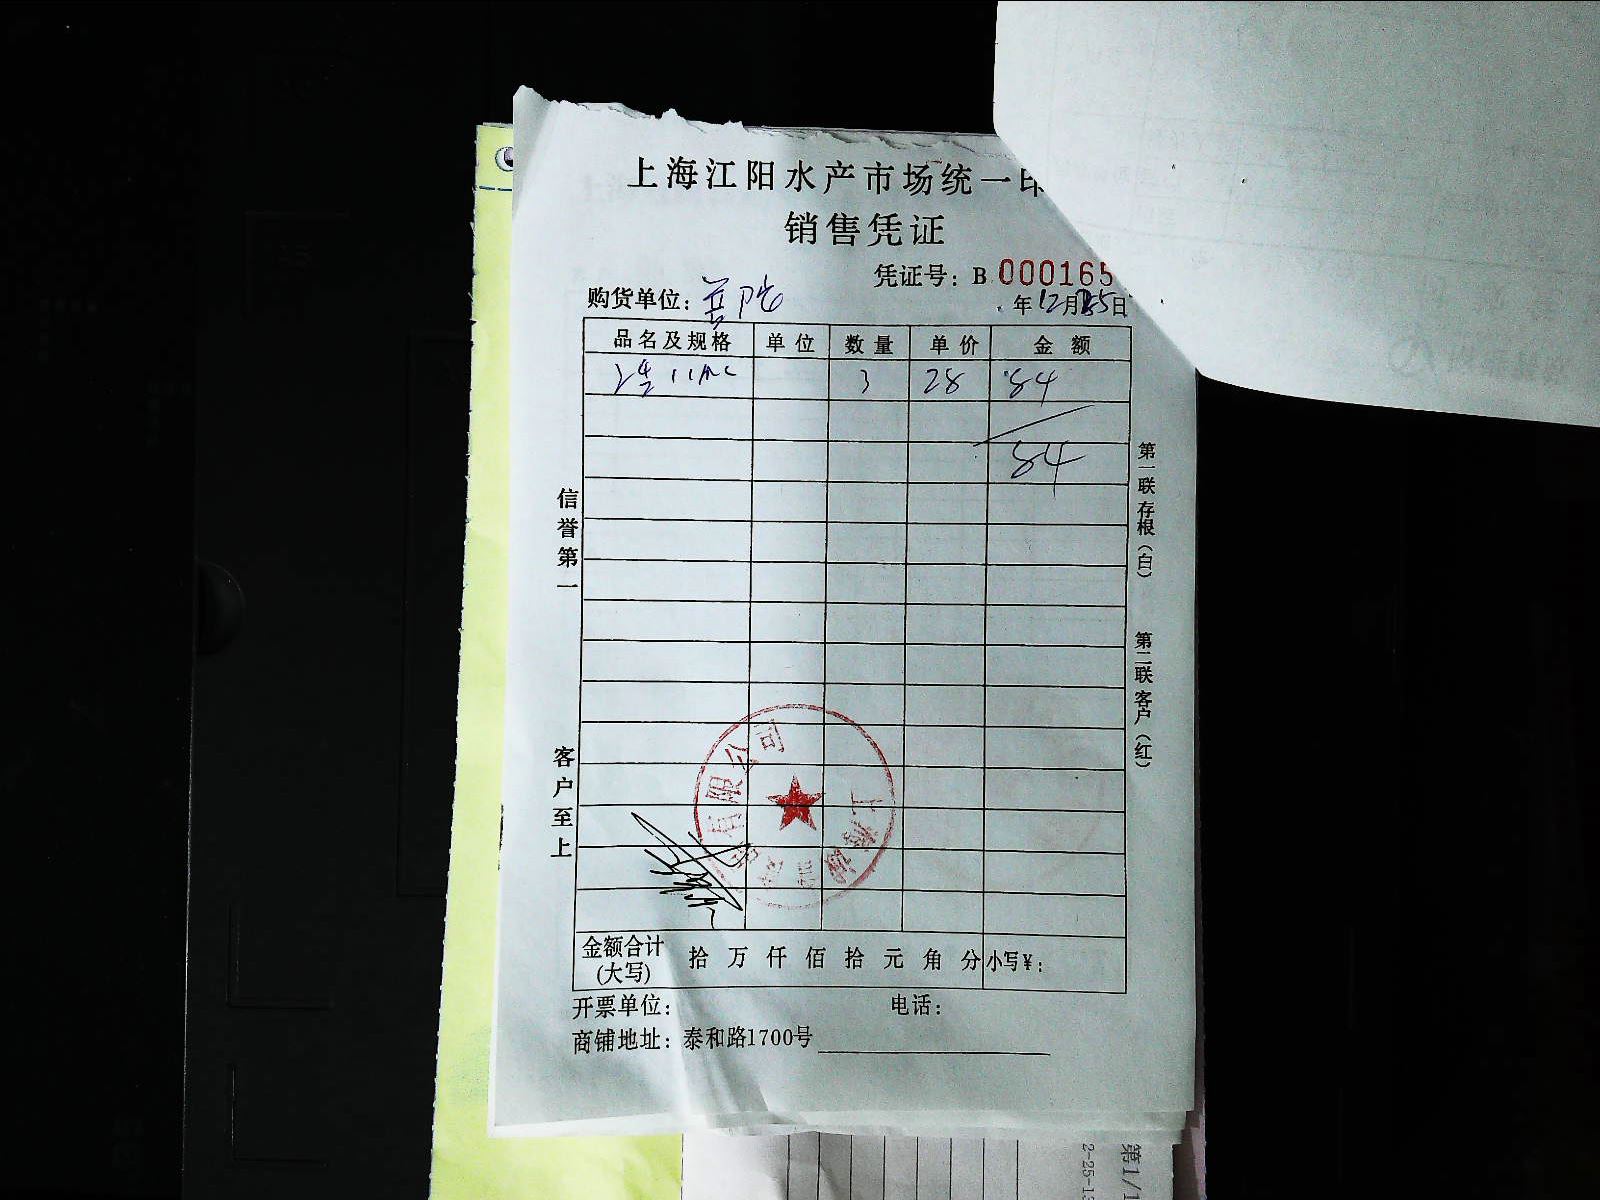 上海江阳水产市场统一印
销售凭证
凭证号：B 000165
购货单位：
年12月25日
品名及规格 单位 数量 单价 金额
3 28 84
84
信誉第一
客户至上
第一联存根（白）
第二联客户（红）
有限公司
上海
金额合计(大写) 拾 万 仟 佰 拾 元 角 分 小写¥：
开票单位： 电话：
商铺地址：泰和路1700号
第1/1
2-25-13